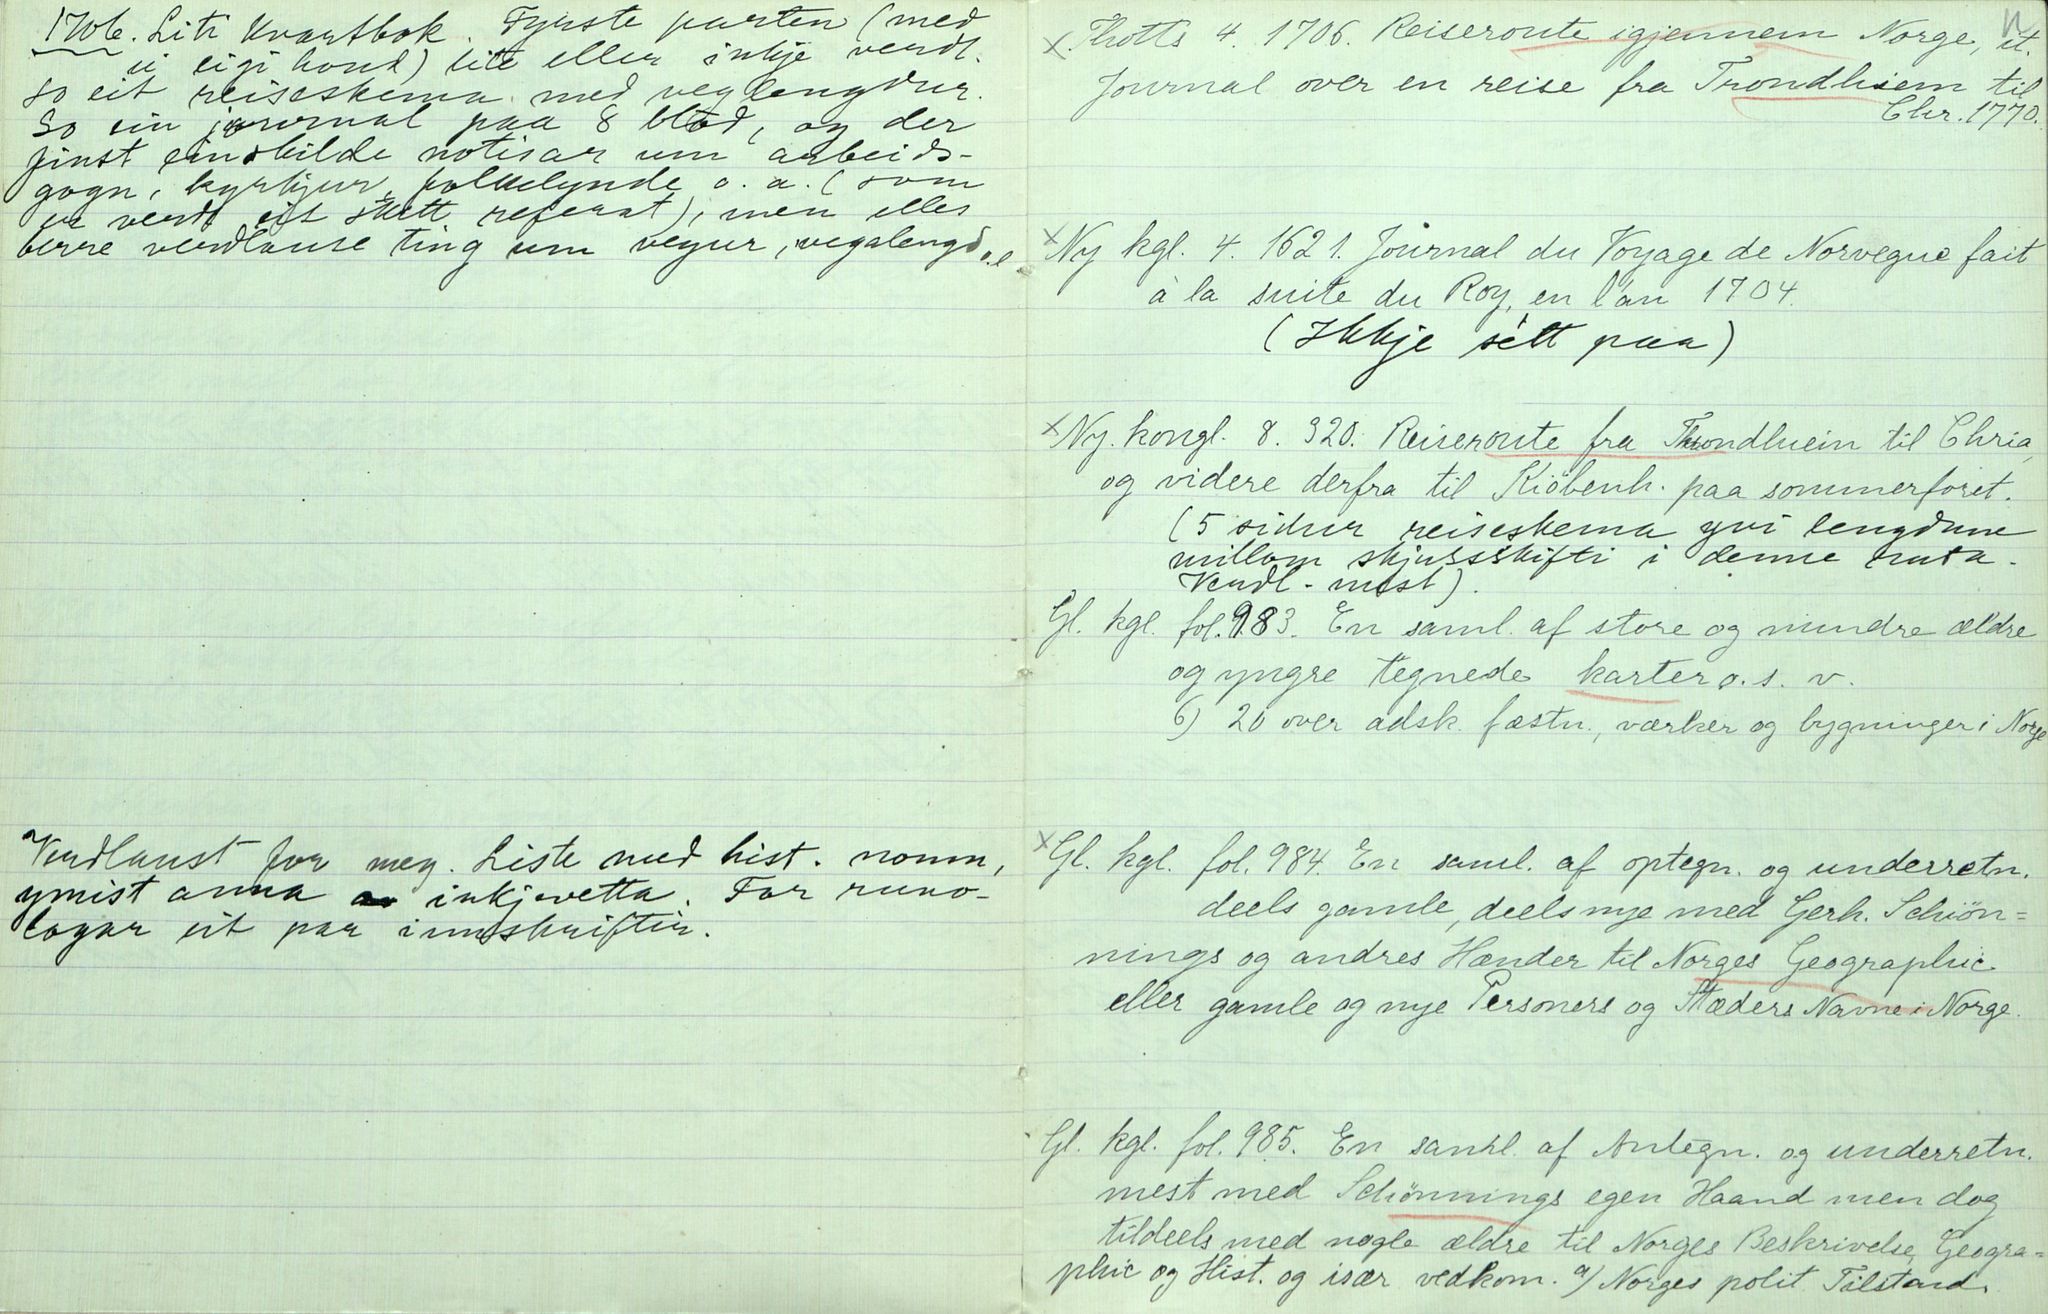 1706. Liti kvartbok. Fyrste parten (med
ei eigi hond) lite eller inkje verdt.
So eit reiseskema med veglengdur.
So ein journal paa 8 blad, og der
finst einskilde notisar um arbeids-
gogn, kyrkjur, folkelynde o. a. (som
er verdt eit stutt referat), men elles
berre verdlause ting um vegur, vegalengd o.l.
Verdlaust for meg. Liste med hist. nomn,
ymist anna inkjevetta. For runo-
logar eit par innskriftir.
N
x Thotts 4. 1706. Reiseroute igjennem Norge, it.
Journal over en reise fra Trondhiem til
Chr. 1770.
x Ny kgl. 4. 1621. Journal du Voyage de Norvegue fait
à la suite du Roy, en l'an 1704.
(Ikkje sétt paa)
x Ny. kongl. 8. 320. Reiseroute fra Throndhiein til Chria,
og videre derfra til Kiöbenh. paa sommerföret.
(5 sidur reiseskema yvi lengdune
millom skjussskifti i denne ruta.
Verdl-mist).
Gl. kgl. fol. 983. En saml. af store og mindre ældre
og yngre tegnede karter o. s. v.
6) 20 over adsk. fæstn., værker og bygninger i Norge
x Gl. kgl. fol. 984. En saml. af optegn. og underretn.
deels gamle, deels nye med Gerh. Schiön=
nings og andres Hænder til Norges Geographie
eller gamle og nye Personers og Stæders Navne i Norge.
Gl. kgl. fol. 985. En saml. af Antegn. og underretn.
mest med Schönnings egen Haand men dog
tildeels med nogle ældre til Norges Beskrivelse, Geogra=
phie og Hist. og især vedkom. a) Norges polit. Tilstand